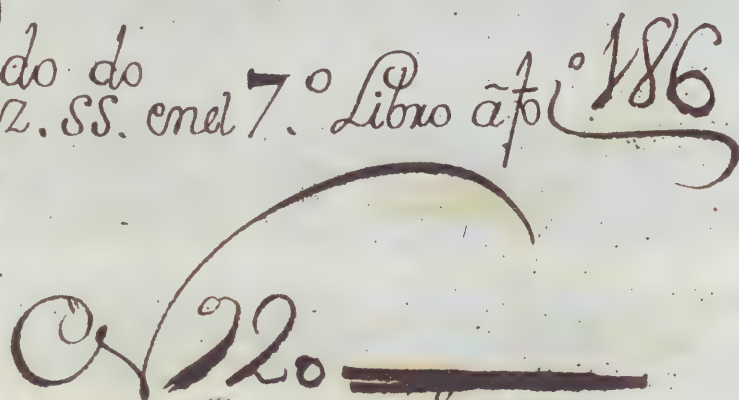 do do
z. SS. enel 7.º Libro ãfº 186